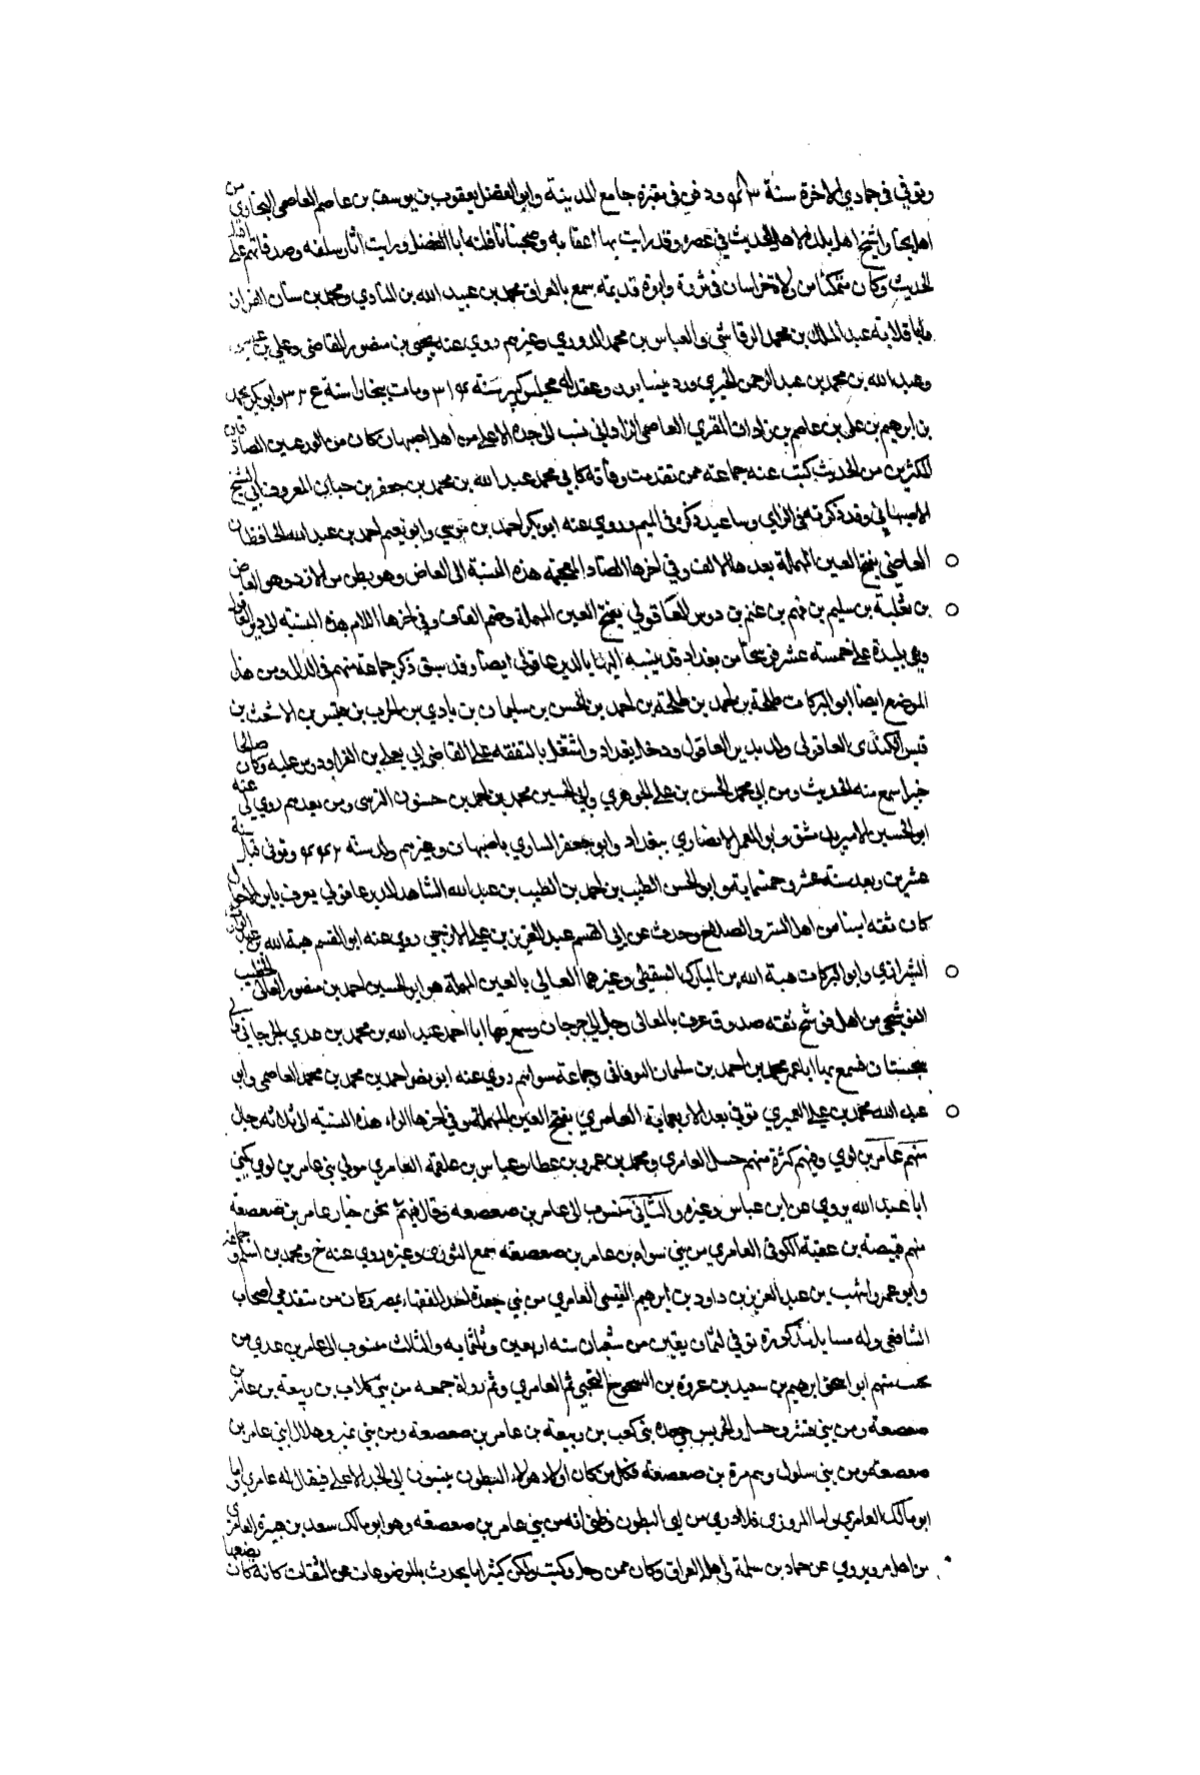 وتوفي في جمادي الاخرة سنة ودفن في مقبرة جامع المدينة وابو الفضل يعقوب بن يوسف بن عاصم العاصمي البخاري من
اهل بخارا شيخ اهل بلده لاهل الحديث في عصره وقد رايت بها اعقابه وصحبنا نافلته ابا الفضل ورايت اثار سلفه وصدقاتهم على اهل
الحديث وكان متمكنا من ولاة خراسان في ثروة وابوة قديمة سمع بالعراق محمد بن عبيد الله بن المنادي ومحمد بن سنان القزاز
وابا قلابة عبد الملك بن محمد الرقاشي والعباس بن محمد الدوري وغيرهم روي عنه يحيى بن منصور القاضي وعلي بن عيسى
وعبد الله بن محمد بن عبد الرحمن الحيري ورد نيسابور وعقد له مجلس كبير سنة ومات ببخارا سنة وابو بكر محمد
بن ابرهيم بن علي بن عاصم بن زادان المقري العاصمي الزاداني نسب الى جده الاعلى من اهل اصبهان كان من الورعين الصادقين
المكثرين من الحديث كتب عنه جماعة ممن تقدمت وفاته كابي محمد عبد الله بن محمد بن جعفر بن حبان المعروف بابي الشيخ
الاصبهاني وقد ذكرته في الزاي وساعيد ذكره في الميم وروي عنه ابو بكر احمد بن موسي وابو نعيم احمد بن عبد الله الحافظان
العاضي بفتح العين المهملة بعدها الالف وفي اخرها الضاد المعجمة هذه النسبة الى العاض وهو بطن من الازد وهو العاض
بن ثعلبة بن سليم بن فهم بن غنم بن دوس العاقولي بفتح العين المهملة وضم القاف وفي اخرها اللام هذه النسبة الى دير العاقول
وهي بليدة على خمسة عشر فرسخا من بغداد قد ينسب اليها بالدير عاقولي ايضا وقد سبق ذكر جماعة منهم في الدال ومن هذا
الموضع ايضا ابو البركات طلحة بن احمد بن طلحة بن احمد بن الحسن بن سليمان بن بادي بن الحرب بن قيس بن الاشعث بن
قيس الكندى العاقولي ولد بدير العاقول ودخل بغداد واشتغل بالتفقه على القاضي ابي يعلى بن الفرا ودرس عليه وكان صالحا
خيرا سمع منه الحديث ومن ابي محمد الحسن بن علي الجوهري وابي الحسين محمد بن احمد بن حسنون النرسي ومن بعدهم روي لي عنه
ابو الحسين الامير بدمشق وابو المعمر الانصاري ببغداد وابو جعفر الساوي باصبهان وغيرهم ولد سنة وتوفي قبل سنة
عشرين وبعد ستة عشر وخمسماية وابو الحسن الطيب بن احمد بن الطيب بن عبد الله الشاهد الدير عاقولي يعرف بابن الاحول
كان ثقة امينا من اهل الستر والصلاح وحدث عن ابي القسم عبد العزيز بن علي الازجي روي عنه ابو القسم هبة الله بن عبد الوارث
الشيرازي وابو البركات هبة الله بن المبارك السقطي وغيرهما العالي بالعين المهملة هو ابو الحسين احمد بن منصور العالي الخطيب
الفوشنجي من اهل فوشنج ثقة صدوق عرف بالعالي رحل الى جرجان وسمع بها ابا احمد عبد الله بن محمد بن عدي الجرجاني
بسجستان فسمع بها ابا عمر محمد بن احمد بن سليمان النوقاتي وجماعة سواهم روي عنه ابو نصر احمد بن محمد بن محمد العاصمي وابو
عبد الله محمد بن علي العميري توفي بعد الاربعماية العامري بفتح العين المهملة وفي اخرها الراء هذه النسبة الى ثلاثة رجال
منهم عامر بن لوي وفيهم كثرة منهم حسل العامري ومحمد بن عمرو بن عطا وعباس بن علقمة العامري مولي بني عامر بن لوي يكني
ابا عبد الله يروي عن ابن عباس وغيره والثاني منسوب الى عامر بن صعصعة وقال فيهم نحن خيار عامر بن صعصعة
منهم قبيصة بن عقبة الكوفي العامري من بني سواه بن عامر بن صعصعة سمع الثوري وغيره روي عنه خ ومحمد بن اسلم وجماعة
وابو عمرو اشهب بن عبد العزيز بن داود بن ابرهيم القيسي العامري من بني جعدة احد الفقهاء بمصر وكان من متقدمي اصحاب
الشافعي وله مسايل مذكورة توفي لثمان بقين من شعبان سنة اربعين وثلثماية والثالث منسوب الى عامر بن عدي من
تجيب منهم ابو اسحق ابرهيم بن سعيد بن عروة بن التجيبي ثم العامري وثم رواة جمعه من بني كلاب بن ربيعة بن عامر بن
صعصعة ومن بني قشير وحسل والحريس وجعدة بني كعب بن ربيعة بن عامر بن صعصعة ومن بني نمير وهلال ابني عامر بن
صعصعة ومن بني سلول وهم مرة بن صعصعة فكل من كان اولاد هولاء البطون ينسبون الى الجد الاعلى فيقال له عامري واما
ابو مالك العامري واما المروزي فلا ادري من اي البطون وظني انه من بني عامر بن صعصعة وهو ابو مالك سعد بن هبيرة العامري
من اهل مرو يروي عن حماد بن سلمة في اهل العراق وكان ممن رحل وكتب ولكن كثيرا ما يحدث بالموضوعات عن الثقات كانه كان يضعها